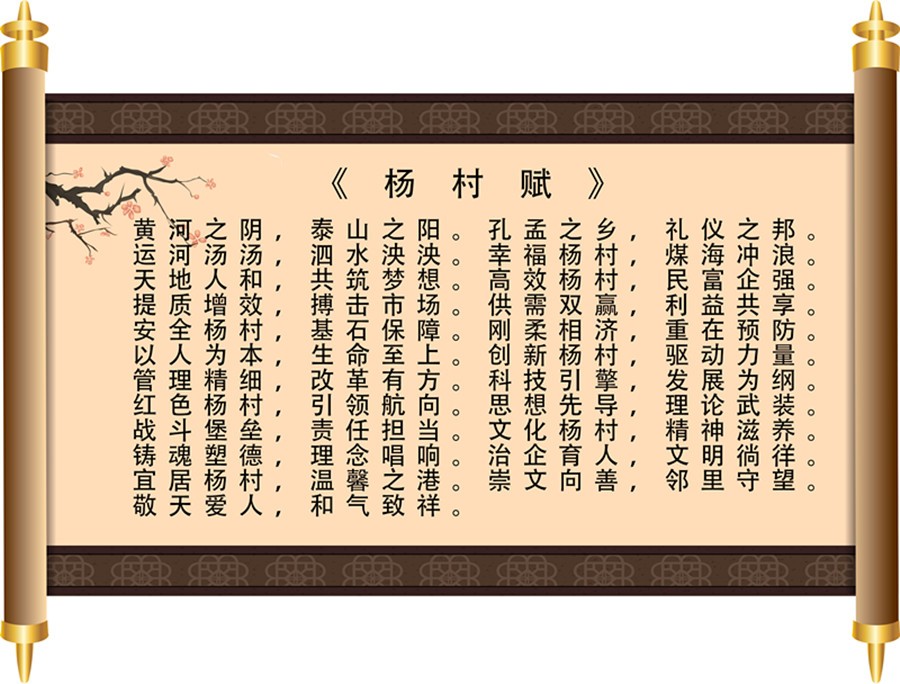 《 杨 村 赋 》
黄河之阴，泰山之阳。孔孟之乡，礼仪之邦。
运河汤汤，泗水泱泱。幸福杨村，煤海冲浪。
天地人和，共筑梦想。高效杨村，民富企强。
提质增效，搏击市场。供需双赢，利益共享。
安全杨村，基石保障。刚柔相济，重在预防。
以人为本，生命至上。创新杨村，驱动力量。
管理精细，改革有方。科技引擎，发展为纲。
红色杨村，引领航向。思想先导，理论武装。
战斗堡垒，责任担当。文化杨村，精神滋养。
铸魂塑德，理念唱响。治企育人，文明徜徉。
宜居杨村，温馨之港。崇文向善，邻里守望。
敬天爱人，和气致祥。